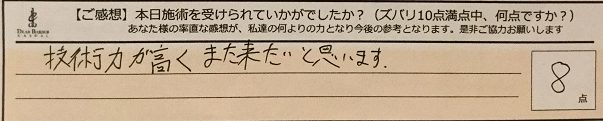 【ご感想】本日施術を受けられていかがでしたか？（ズバリ10点満点中、何点ですか？）
あなた様の率直な感想が、私達の何よりの力となり今後の参考となります。是非ご協力お願いします
DEAR BARBER
技術力が高く また来たいと思います.
8
点